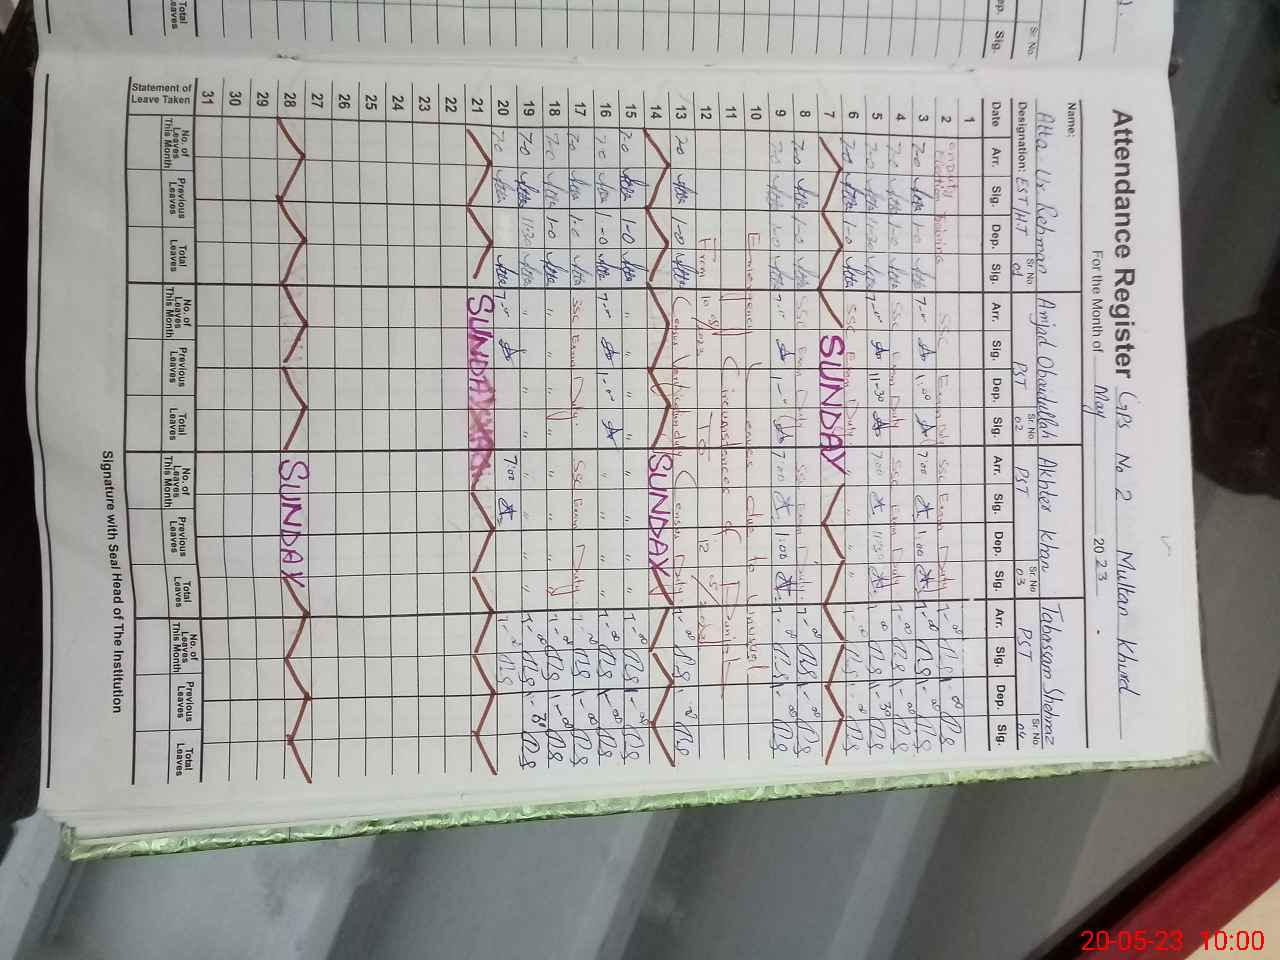 Attendance Register GPS No 2 Multan Khurd
For the Month of May 2023
Name: Atta Ur Rehman Amjad Obaidullah Akhter Khan Tabassam Shehnaz
Designation: EST/HT Sr. No. 01 PST Sr. No. 02 PST Sr. No. 03 PST Sr. No. 04
Date Arr. Sig. Dep. Sig. Arr. Sig. Dep. Sig. Arr. Sig. Dep. Sig. Arr. Sig. Dep. Sig.
1
2 Election Training SSC Exam Duty SSC Exam Duty 7-00 1-00
3 7-0 1-0 7-00 1:00 7:00 1:00 7-00 1-00
4 7-0 1-0 SSC Exam Duty SSC Exam Duty 7-00 1-00
5 7-0 11:30 7-00 11-30 7:00 11:30 7-00 1-30
6 7-0 1-0 SSC Exam Duty " " " 7-00 1-00
7 SUNDAY
8 7-0 1-0 SSC Exam Duty SSC Exam Duty 7-00 1-00
9 7-0 1-0 7-00 1-00 7:00 1:00 7-00 1-00
10 Emergency leaves due to unusual
11 Circumstances of
12 From 10/05/2023 To 12/05/2023
13 7-0 1-0 Census Verification duty Census Duty 7-00 1-00
14 SUNDAY
15 7-0 1-0 " " " " 7-00 1-00
16 7-0 1-0 7-00 1-00 " " 7-00 1-00
17 7-0 1-0 SSC Exam Duty. SSC Exam Duty. 7-00 1-00
18 7-0 1-0 " " " " 7-00 1-00
19 7-0 11:30 " " " " 7-00 1-30
20 7-0 7-00 7:00 7-00
21 SUNDAY
22
23
24
25
26
27
28 SUNDAY
29
30
31
Statement of Leave Taken
No. of Leaves This Month Previous Leaves Total Leaves No. of Leaves This Month Previous Leaves Total Leaves No. of Leaves This Month Previous Leaves Total Leaves No. of Leaves This Month Previous Leaves Total Leaves
Signature with Seal Head of The Institution
Sr. No.
Sig.
Total Leaves
20-05-23 10:00